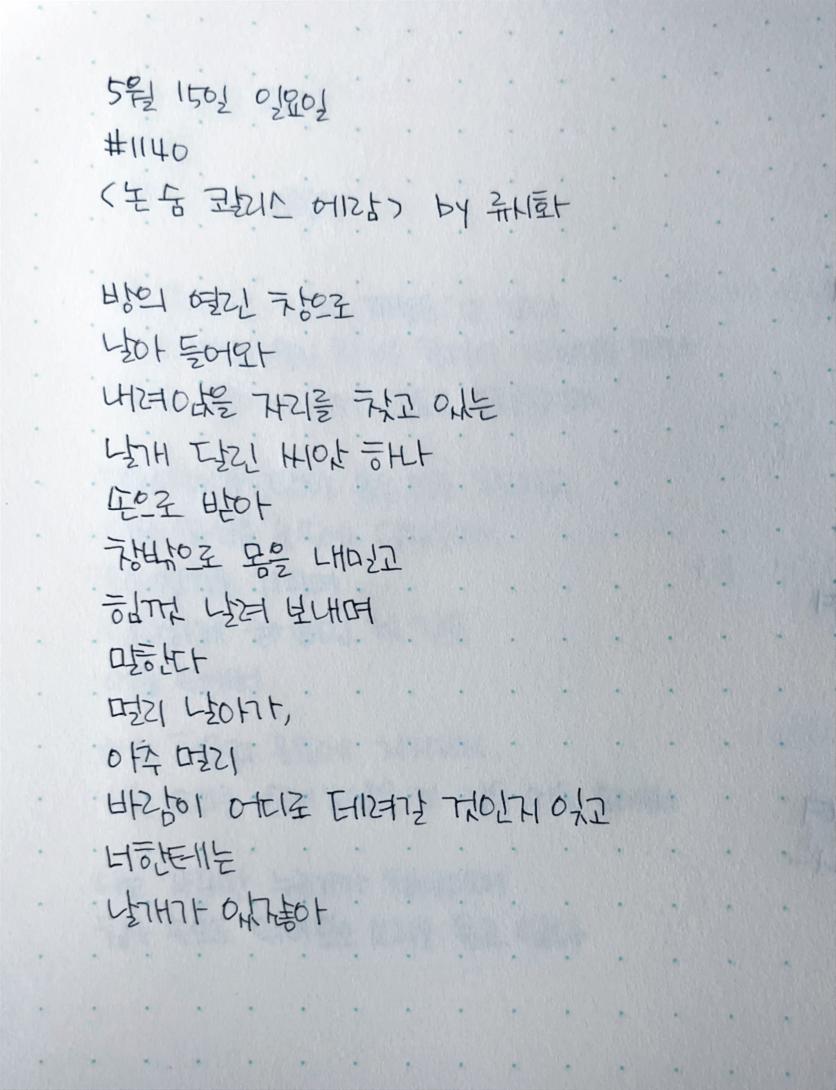 5월 15일 일요일
#1140
<논 숨 콸리스 에람> by 류시화
방의 열린 창으로
날아 들어와
내려앉을 자리를 찾고 있는
날개 달린 씨앗 하나
손으로 받아
창밖으로 몸을 내밀고
힘껏 날려 보내며
말한다
멀리 날아가,
아주 멀리
바람이 어디로 데려갈 것인지 잊고
너한테는
날개가 있잖아